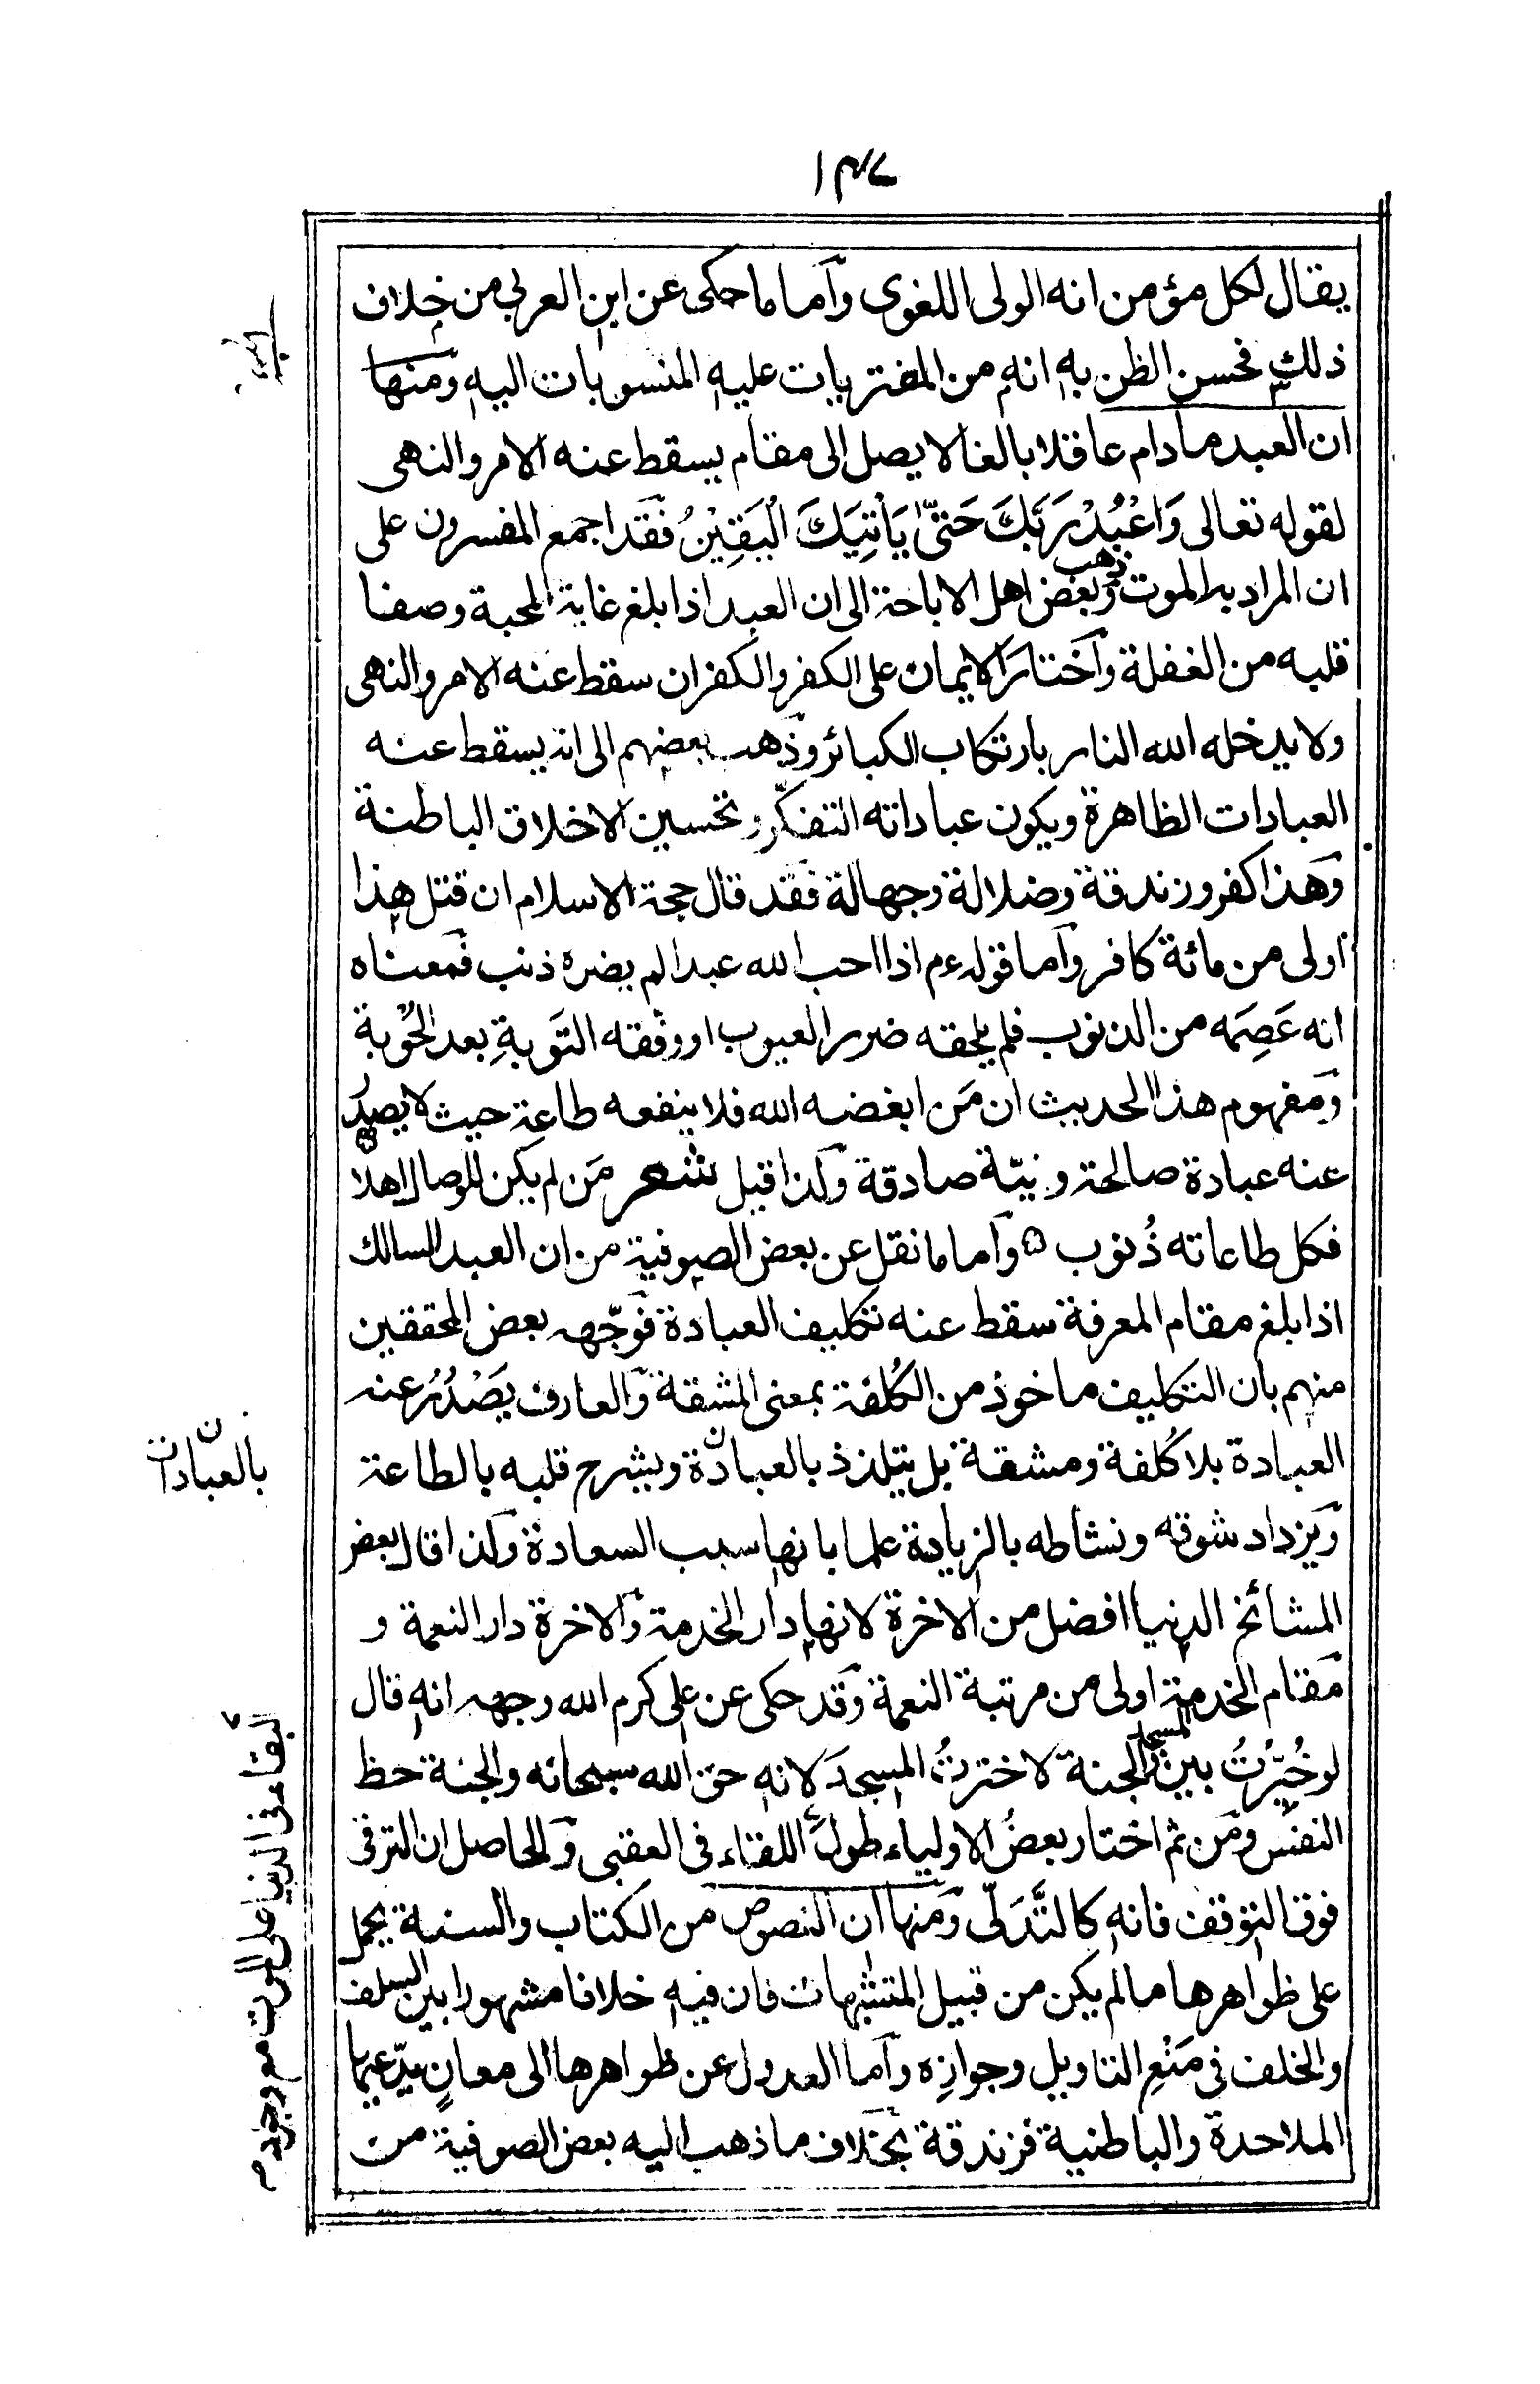 ١٣٧
يقال لكل مؤمن انه الولى اللغوى وأما ما حكى عن ابن العربى من خلاف
ذلك فحسن الظن به انه من المفتريات عليه المنسوبات اليه ومنها
ان العبد مادام عاقلا بالغا لا يصل الى مقام يسقط عنه الامر والنهى
لقوله تعالى وَاعْبُدْ رَبَّكَ حَتّىٰ يَأْتِيَكَ الْيَقِيْنُ فقد اجمع المفسرون على
ان المراد به الموت وذهب بعض اهل الاباحة الى ان العبد اذا بلغ غاية المحبة وصفا
قلبه من الغفلة وأختار الايمان على الكفر والكفران سقط عنه الامر والنهى
ولا يدخله الله النار بارتكاب الكبائر وذهب بعضهم الى انه يسقط عنه
العبادات الظاهرة ويكون عباداته التفكّر وتحسين الاخلاق الباطنة
وهذا كفر وزندقة وضلالة وجهالة فقد قال حجة الاسلام ان قتل هذا
أولى من مائة كافر وأما قوله عم اذا احب الله عبدا لم يضره ذنب فمعناه
انه عَصِمَه من الذنوب فلم يلحقه ضرر العيوب او وفقه التَوبةِ بعد الحُوْبة
ومفهوم هذا الحديث ان مَن ابغضه الله فلا ينفعه طاعة حيث لا يصدُر
عنه عبادة صالحة ونيّة صادقة ولذا قيل شعر مَن لم يكن للوصال اهلا
فكل طاعاته ذُنوب وأما ما نقل عن بعض الصوفية من ان العبد السالك
اذا بلغ مقام المعرفة سقط عنه تكليف العبادة فوَجّهه بعض المحققين
منهم بان التكليف ماخوذ من الكُلفة بمعنى المشقة والعارف يَصْدُرُ عنه
العبادة بلا كُلفة ومشقة بل يتلذذ بالعبادة ويشرح قلبه بالطاعة
ويزداد شوقه ونشاطه بالزيادة علما بانها سبب السعادة ولذا قال بعض
المشائخ الدنيا افضل من الاخرة لانها دار الخدمة والاخرة دار النعمة و
مقام الخدمة اولى من مرتبة النعمة وقد حكى عن على كرم الله وجهه انه قال
لو خُيّرتُ بين المسجد والجنة لاخترتُ المسجدَ لانه حق الله سبحانه والجنة حظ
النفس ومن ثم اختار بعضُ الاولياء طولَ اللقاء فى العقبى والحاصل ان الترقى
فوق التوقف فانه كالتَّدَلّى ومنها ان النصوص من الكتاب والسنة يحمل
على ظواهرها مالم يكن من قبيل المتشبهات فان فيه خلافا مشهورا بين السلف
والخلف فى مَنْعِ التاويل وجوازِه وأما العدول عن ظواهرها الى معانٍ يدّعيها
الملاحدة والباطنية فزندقة بخلاف ما ذهب اليه بعض الصوفية من
بالعبادات ن
البقاء فى الدنيا على الموت مع وجود